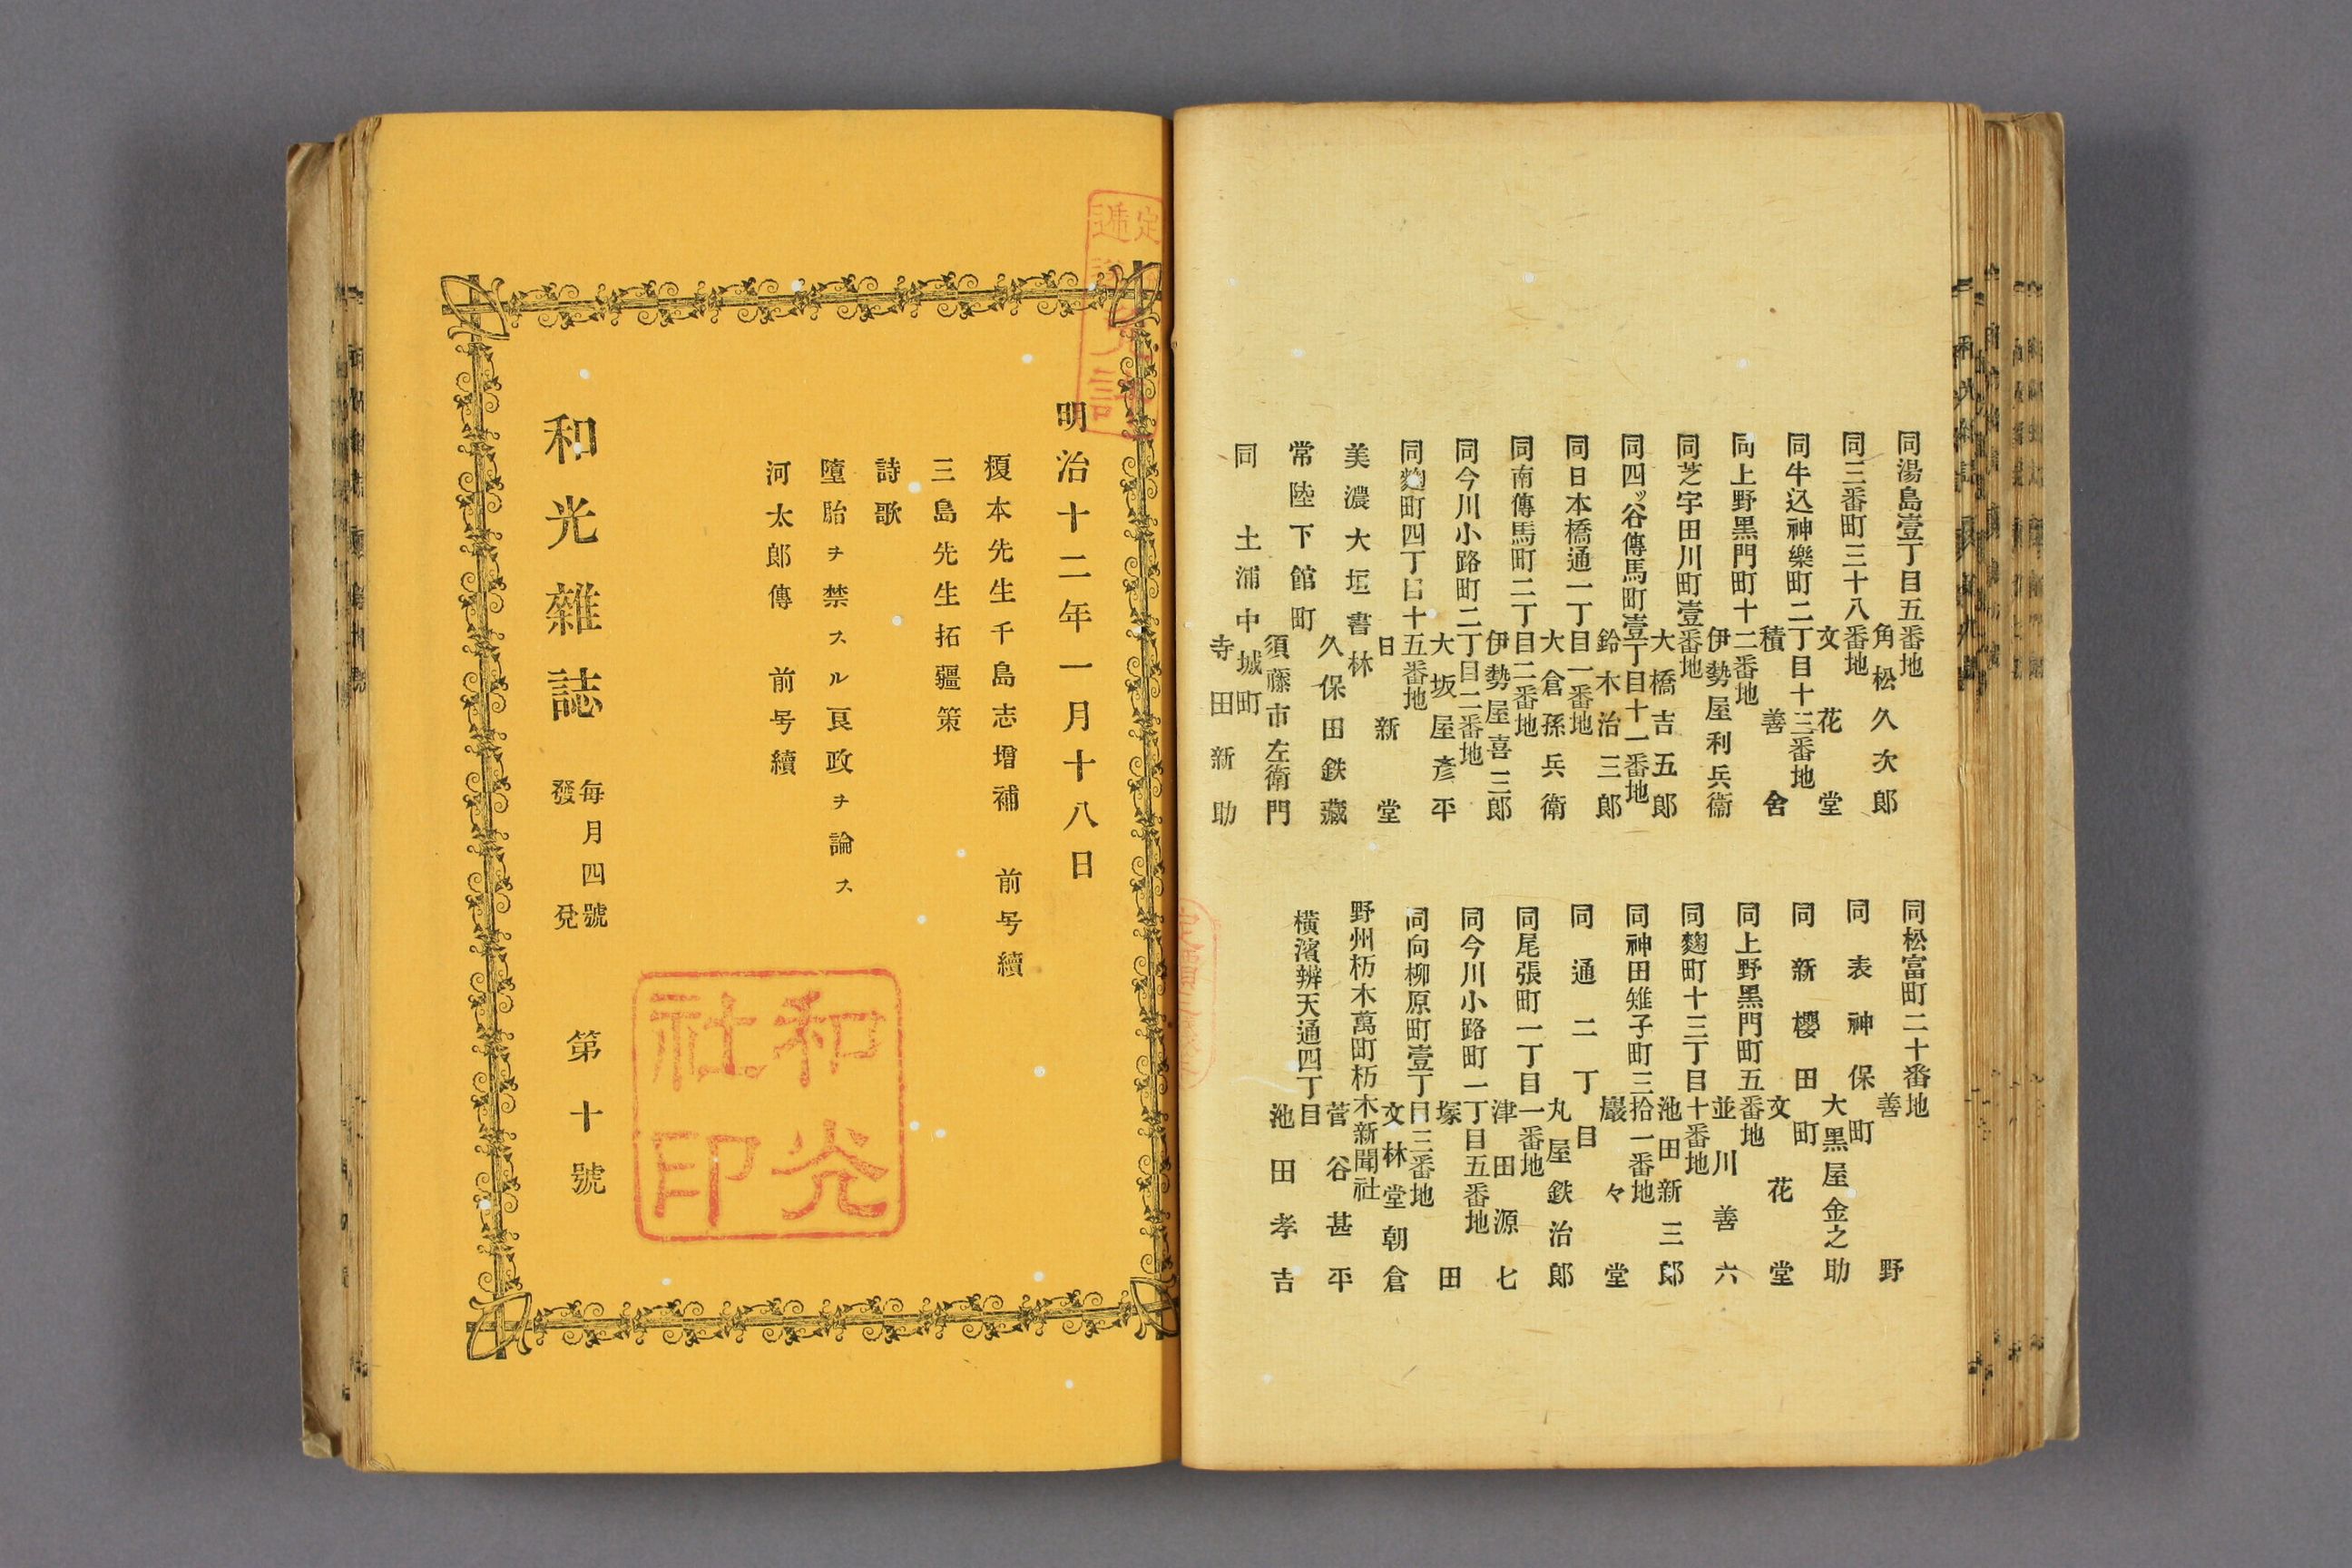 同湯島壹丁目五番地
角松久次郎
同三番町三十八番地
文花堂
同牛込神樂町二丁目十三番地
積善舍
同上野黑門町十二番地
伊勢屋利兵衞
同芝宇田川町壹番地
大橋吉五郎
同四ッ谷傳馬町壹丁目十一番地
鈴木治三郎
同日本橋通一丁目一番地
大倉孫兵衛
同南傳馬町二丁目二番地
伊勢屋喜三郎
同今川小路町二丁目二番地
大坂屋彥平
同麴町四丁目十五番地
日新堂
美濃大垣書林
久保田鉄藏
常陸下館町
須藤市左衛門
同土浦中城町
寺田新助
同松富町二十番地
善野
同表神保町
大黑屋金之助
同新櫻田町
文花堂
同上野黑門町五番地
並川善六
同麴町十三丁目十番地
池田新三郎
同神田雉子町三拾一番地
巖々堂
同通二丁目
丸屋鉄治郎
同尾張町一丁目一番地
津田源七
同今川小路町一丁目五番地
塚田
同向柳原町壹丁目三番地
文林堂朝倉
野州杤木萬町杤木新聞社
菅谷甚平
橫濱辨天通四丁目
池田孝吉
明治十二年一月十八日
榎本先生千島志增補 前号續
三島先生拓疆策
詩歌
墮胎ヲ禁スル良政ヲ論ス
河太郎傳 前号續
和光雜誌 每月四號發兌 第十號
和光社印